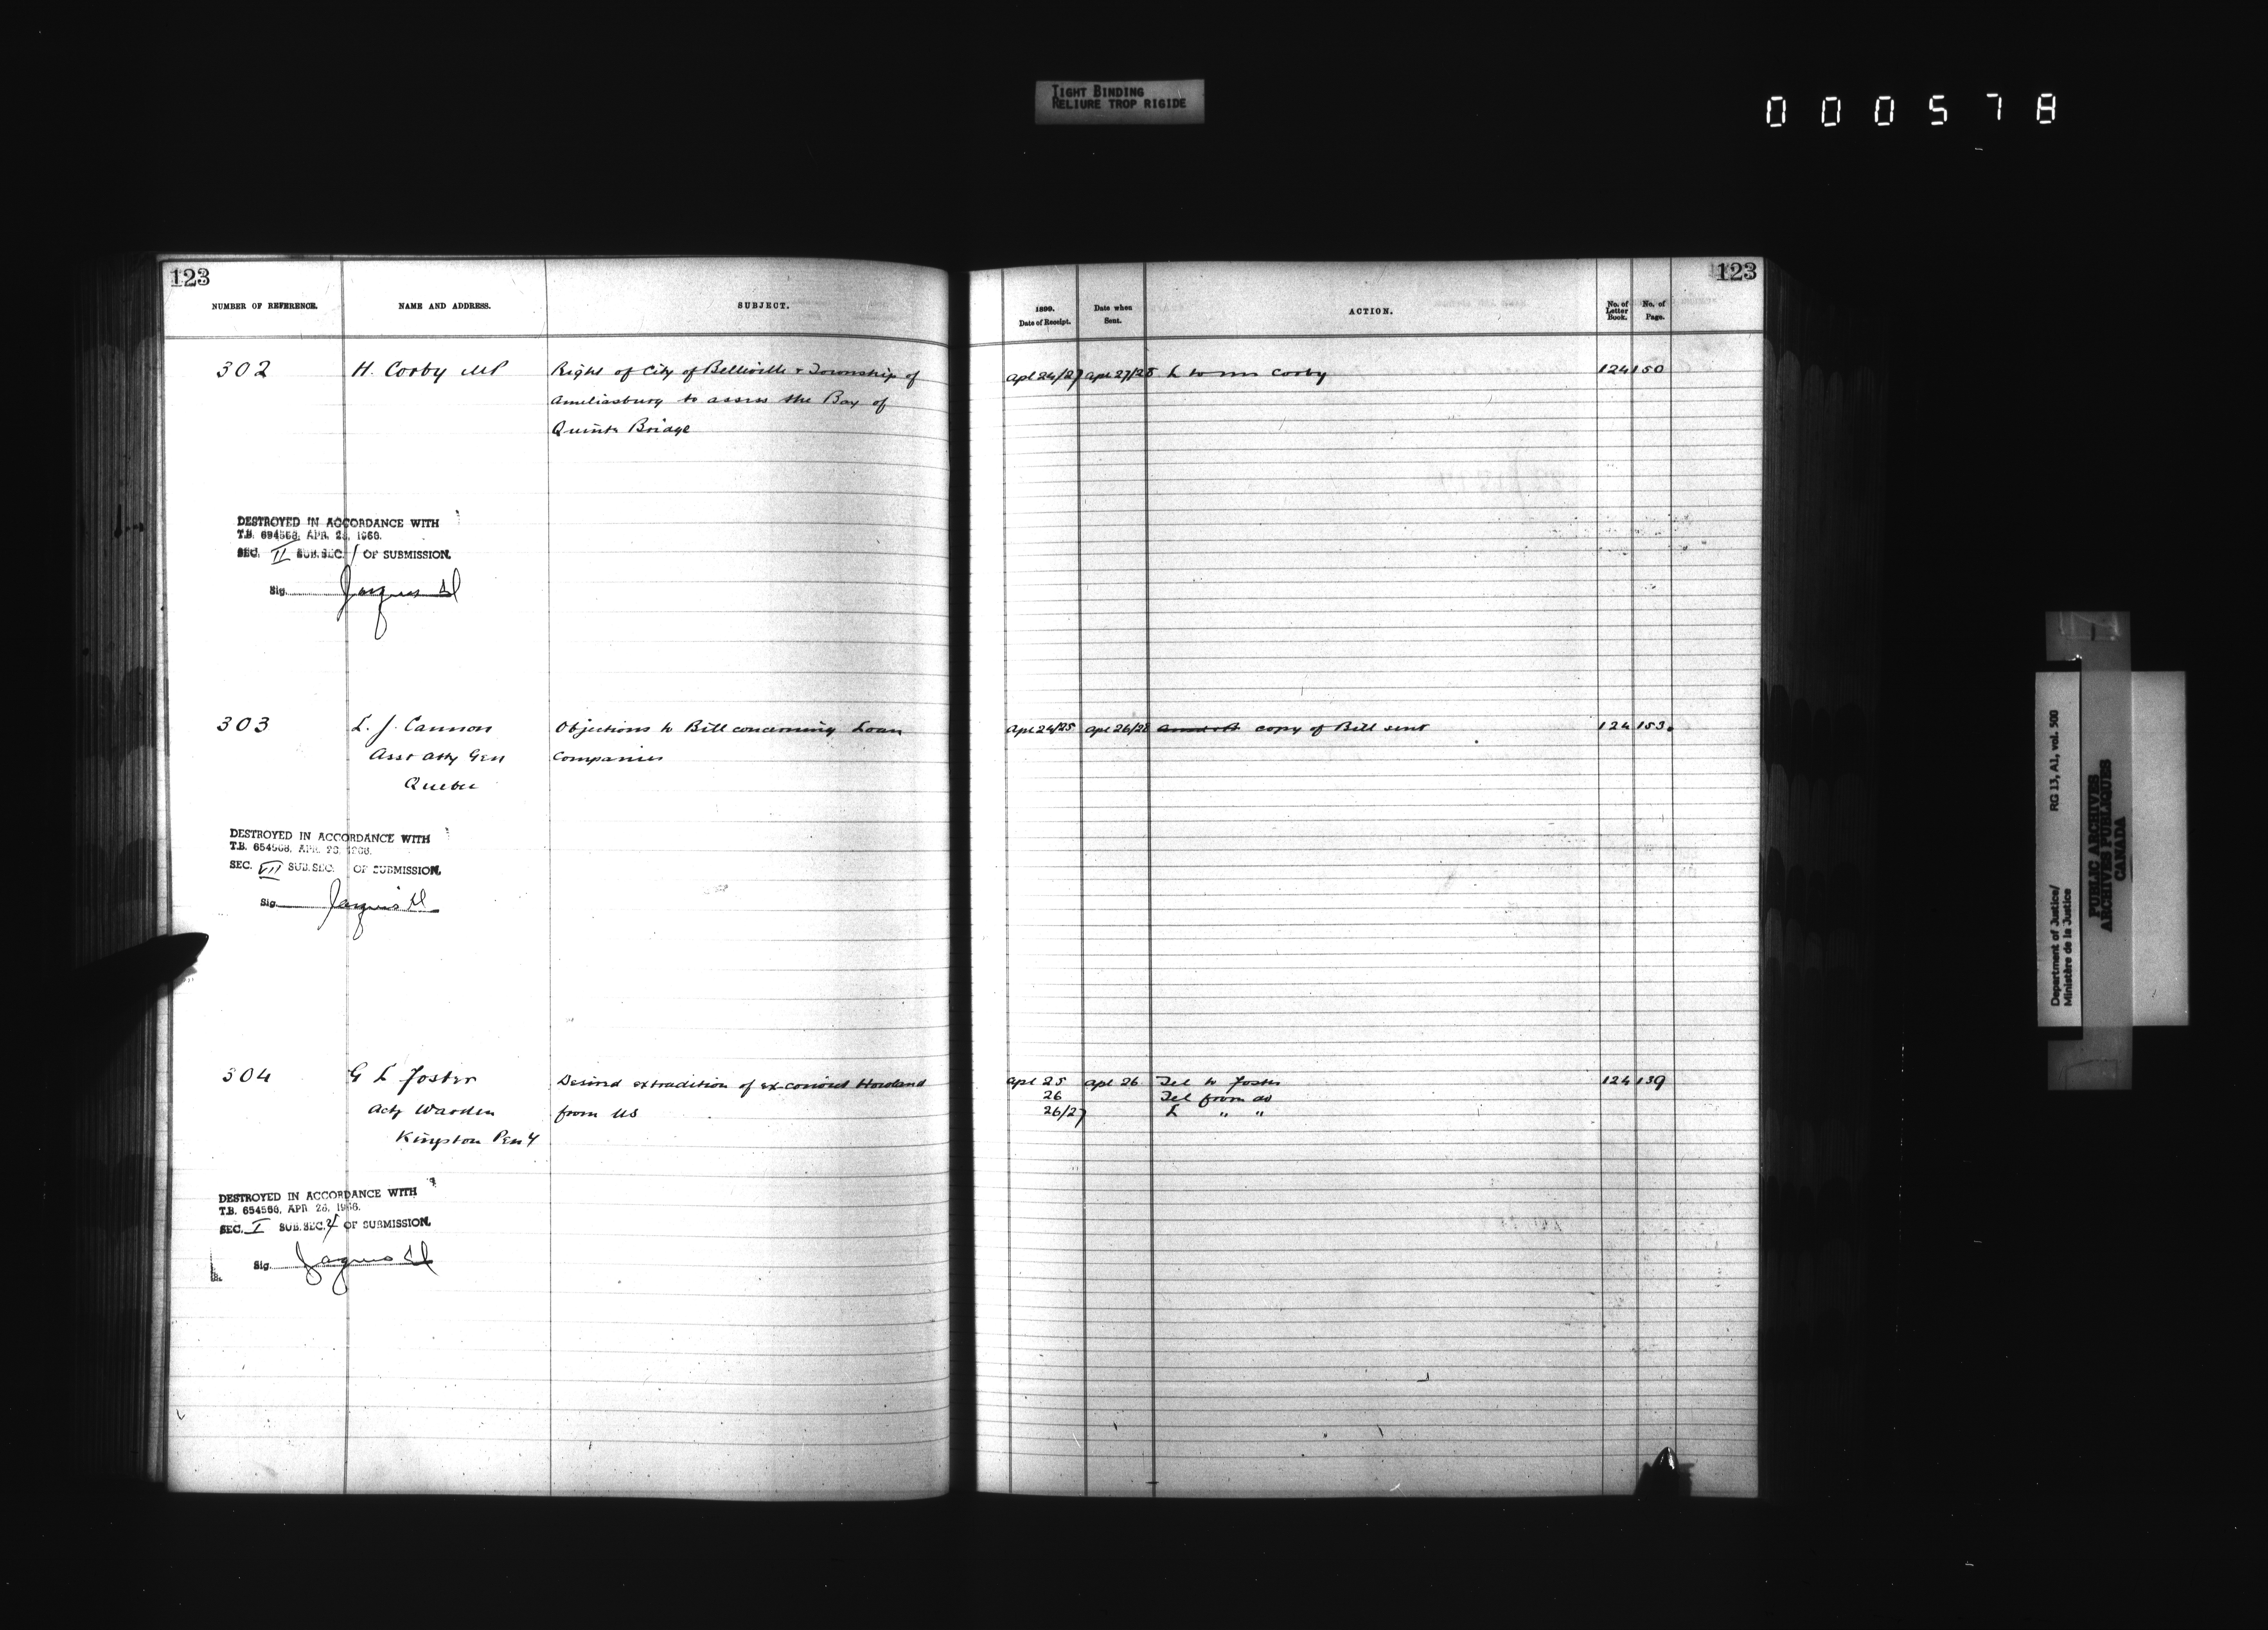 TIGHT BINDING
RELIURE TROP RIGIDE
000578
123
NUMBER OF REFERENCE.
NAME AND ADDRESS.
SUBJECT.
302
H. Corby MP
Right of City of Belleville & Township of
Ameliasburg to assess the Bay of
Quinte Bridge
DESTROYED IN ACCORDANCE WITH
T.B. 654568, APR. 28, 1966.
SEC. II SUB.SEC. 1 OF SUBMISSION.
Sig.
303
L. J. Cannon
Asst Atty Gen
Quebec
Objections to Bill concerning Loan
Companies
DESTROYED IN ACCORDANCE WITH
T.B. 654568, APR. 28, 1966.
SEC. VII SUB.SEC. OF SUBMISSION.
Sig.
304
G L Foster
Actg Warden
Kingston Peny
Desired extradition of ex-convict Howland
from US
DESTROYED IN ACCORDANCE WITH
T.B. 654568, APR. 28, 1966.
SEC. I SUB.SEC. 4 OF SUBMISSION.
Sig.
123
1899.
Date of Receipt.
Date when
Sent.
ACTION.
No. of
Letter
Book.
No. of
Page.
Apl 24/27 Apl 27/28 L to mr Corby 124 150
Apl 24/25 Apl 26/28 copy of Bill sent 124 153
Apl 25 Apl 26 Tel to Foster 124 139
26 Tel from do
26/27 L " "
Department of Justice/ RG 13, A1, vol. 500
Ministère de la Justice
PUBLIC ARCHIVES
ARCHIVES PUBLIQUES
CANADA